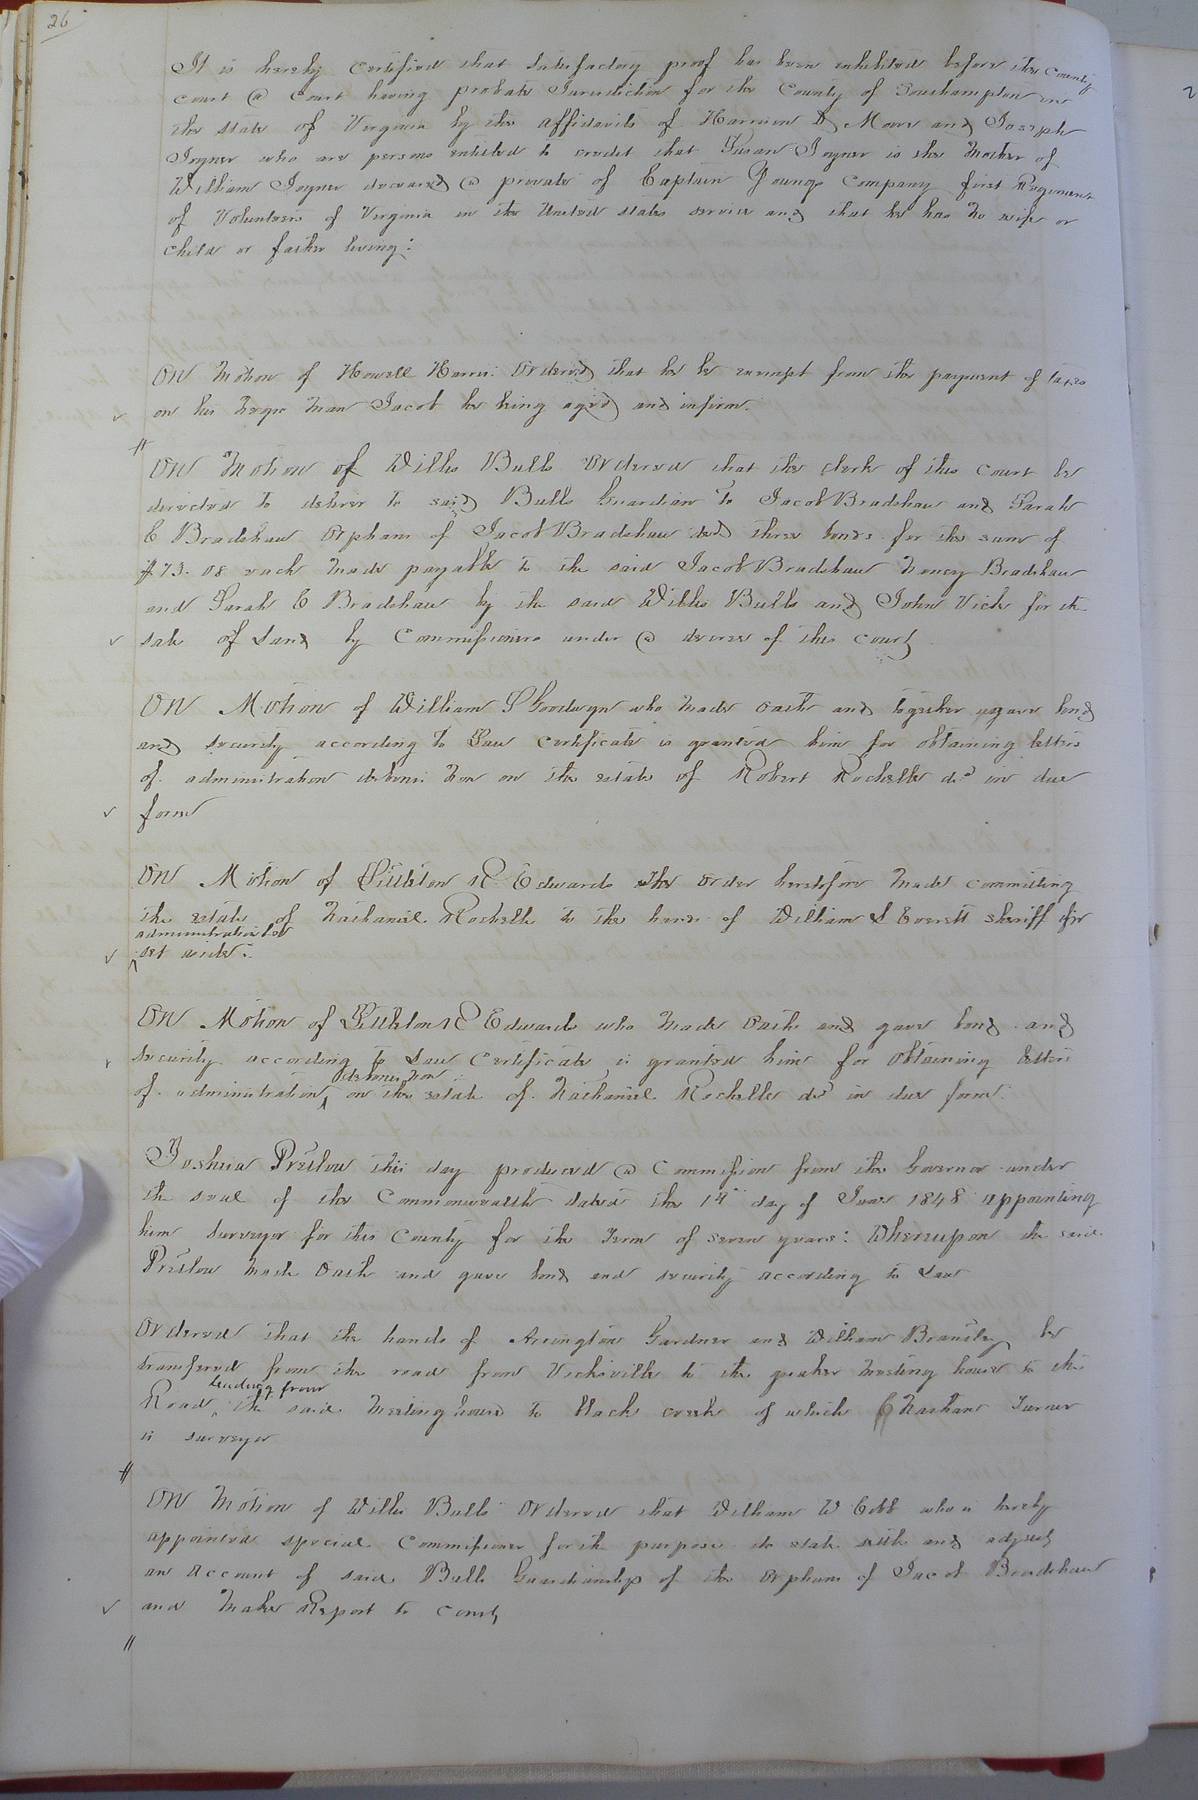 26
It is hereby certified that satisfactory proof has been exhibited before the County
court @ Court having probate Jurisdiction for the County of Southampton in
the state of Virginia by the affidavits of Harrison D Moore and Joseph
Joyner who are persons entitled to credit that Susan Joyner is the Mother of
William Joyner deceased @ private of Captain Youngs Company first Regiment
of Volunteers of Virginia in the United states service and that he has No wife or
child or father living:
ON Motion of Howell Harris Ordered that he be exempt from the payment of taxes
on his Negro Man Jacob he being aged and infirm.
ON Motion of Willis Bulls Ordered that the clerk of this Court be
directed to deliver to said Bulls Guardian To Jacob Bradshaw and Sarah
E Bradshaw Orphans of Jacob Bradshaw decd three bonds for the sum of
$73.08 each Made payable to the said Jacob Bradshaw Nancy Bradshaw
and Sarah E Bradshaw by the said Willis Bulls and John Vick for the
sale of Land by Commissioners under @ decree of this court
ON Motion of William S Goodwyn who Made Oath and together gave bond
and security according to Law Certificate is granted him for obtaining letters
of administration debonis Non on the estate of Robert Rochelle decd in due
form
ON Motion of Littleton R Edwards The Order heretofore Made committing
the estate of Nathaniel Rochelle to the hands of William S Everett sheriff for
administration be
set aside:
ON Motion of Littleton R Edwards who Made Oath and gave bond and
security according to Law Certificate is granted him for Obtaining letters
debonis Non
of administration on the estate of Nathaniel Rochelle decd in due form.
Joshua Pretlow this day produced @ Commission from the Governor under
the seal of the Commonwealth dated the 14th day of June 1848 appointing
him Surveyor for this County for the Term of seven years: Whereupon the said
Pretlow Made Oath and gave bond and security according to Law
Ordered that the hands of Arrington Gardner and William Brantley be
transfered from the road from Vicksville to the quaker Meeting house to the
leading from
Road the said Meeting house to Black creek of which Nathan Turner
is surveyor
ON Motion of Willis Bulls Ordered that William W Cobb who is hereby
appointed special Commissioner for the purpose do state settle and adjust
an Account of said Bulls Guardianship of the Orphans of Jacob Bradshaw
and Make Report to Court